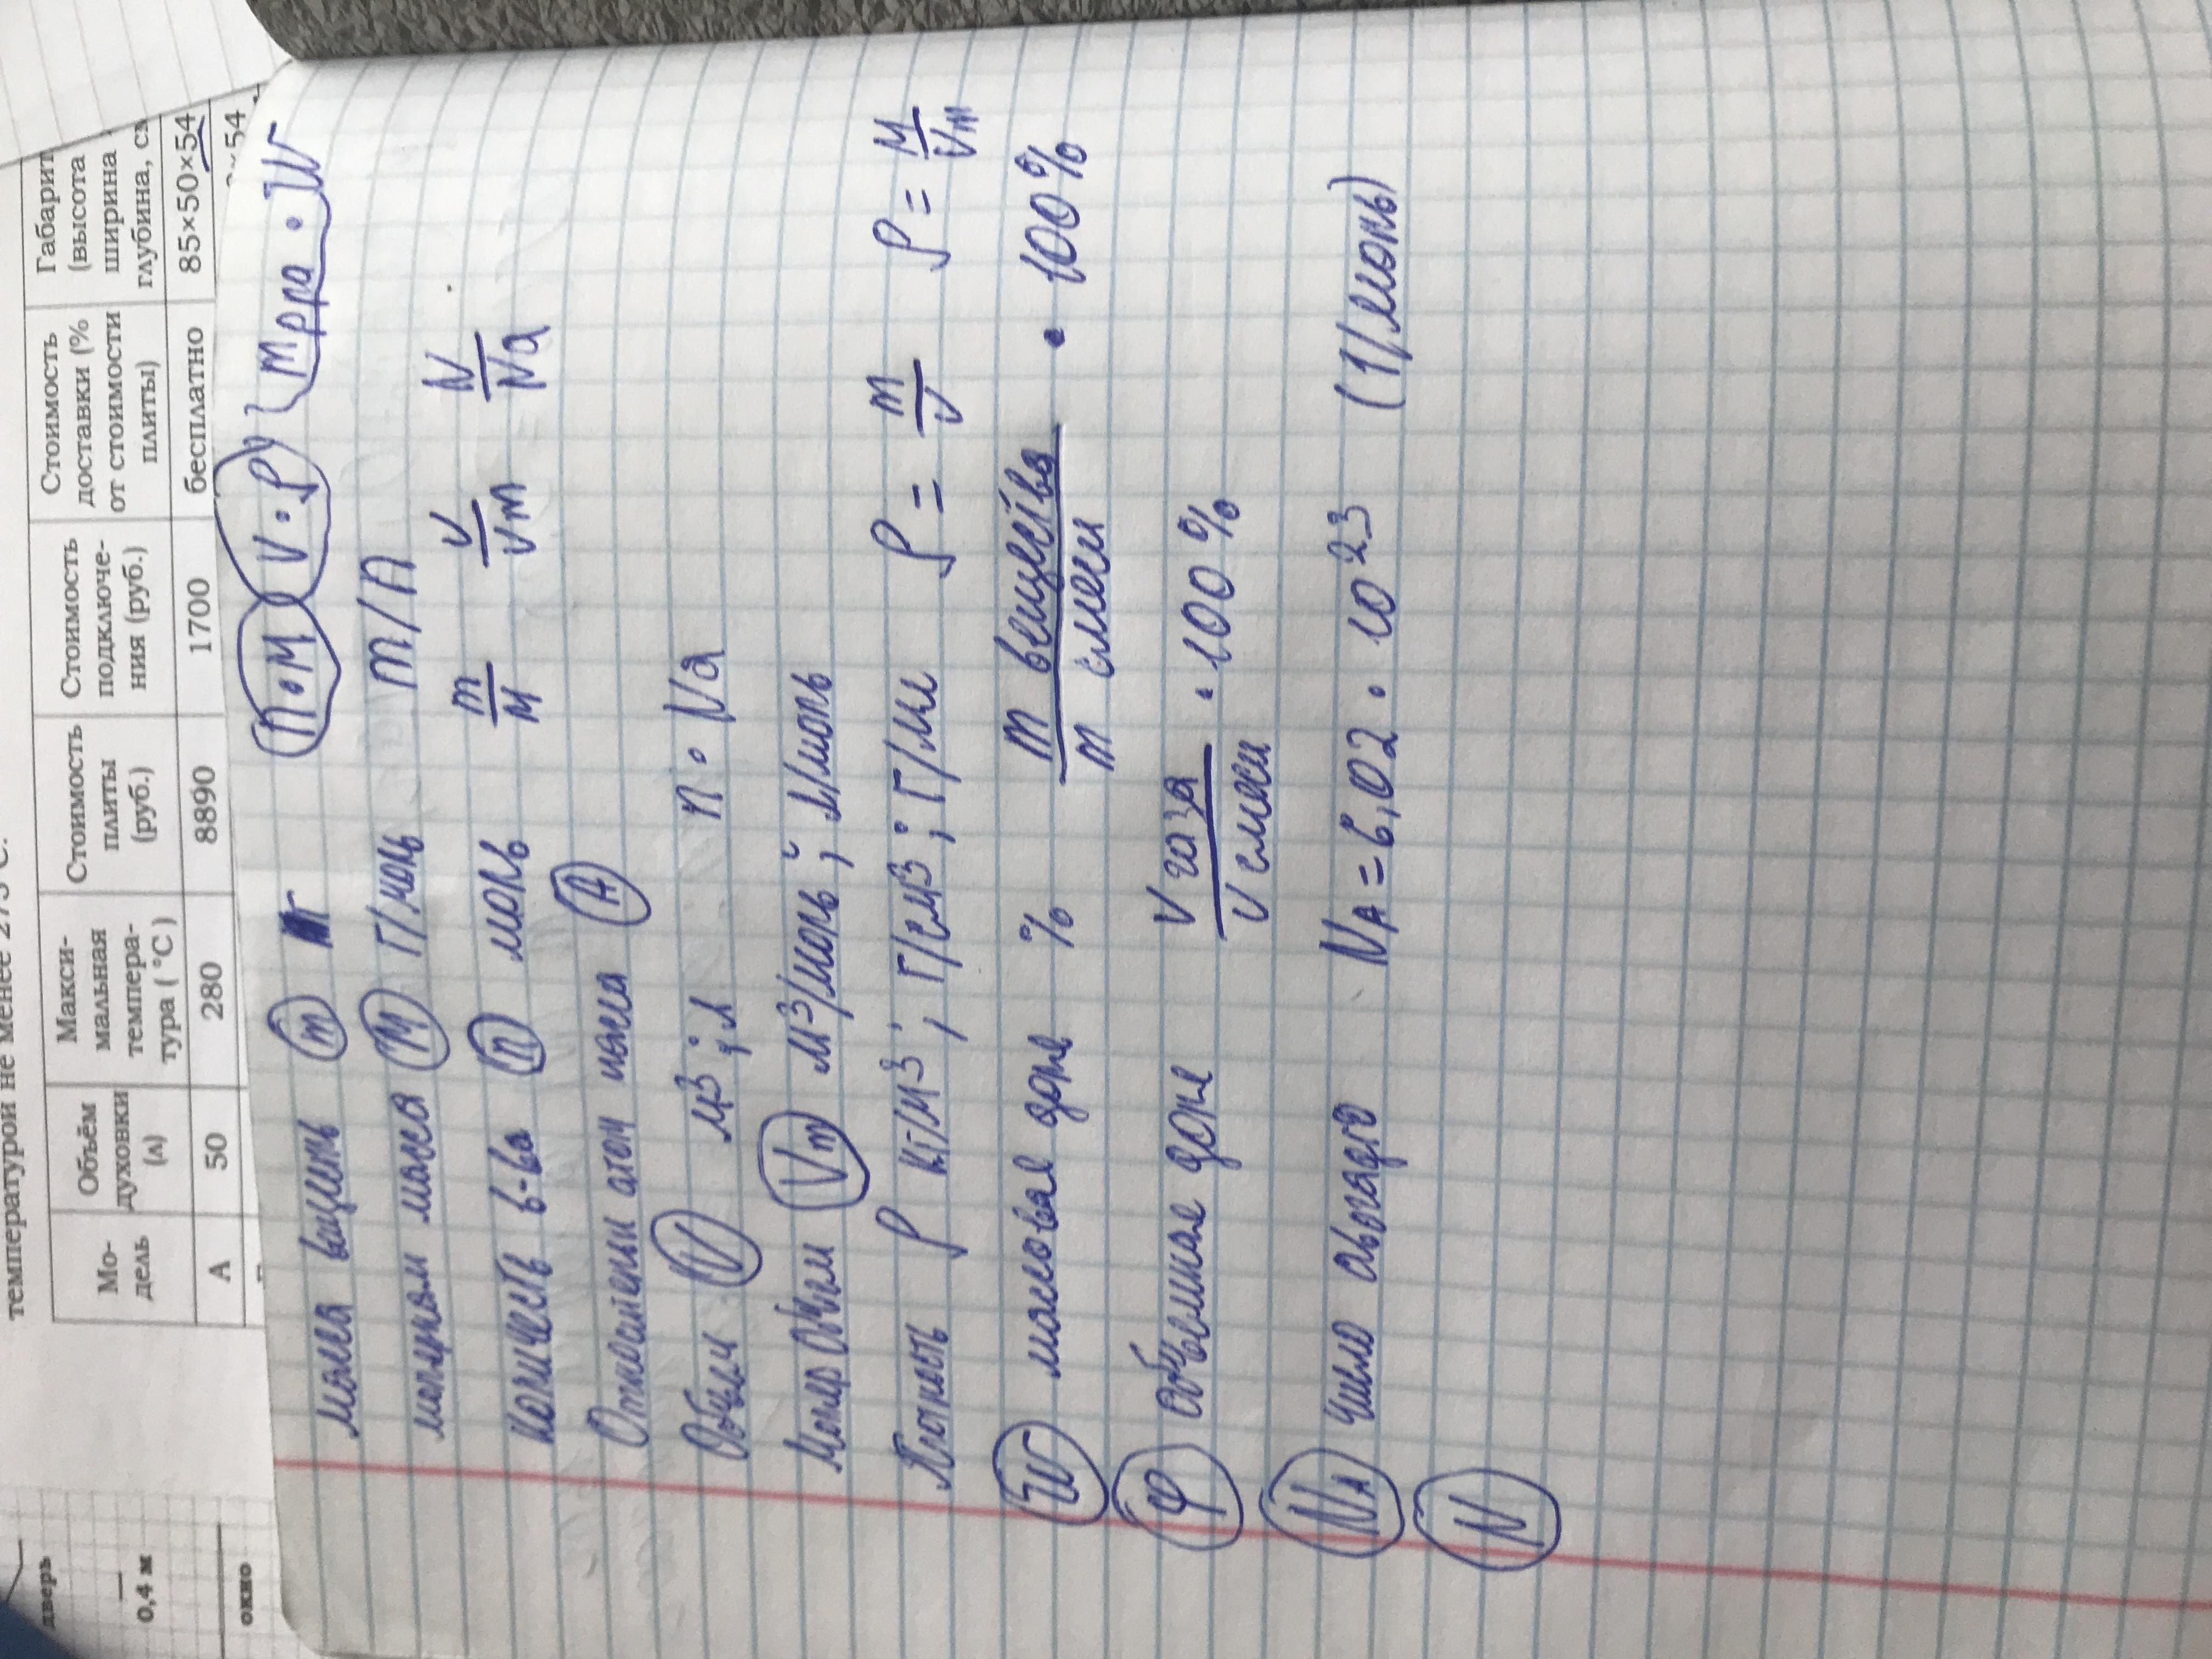 температурой не менее 275 °С.
Мо-
дель
Объём
духовки
(л)
Макси-
мальная
темпера-
тура ( °С )
Стоимость
плиты
(руб.)
Стоимость
подключе-
ния (руб.)
Стоимость
доставки (%
от стоимости
плиты)
Габарит
(высота
ширина
глубина, см
А 50 280 8890 1700 бесплатно 85×50×54
×54
дверь
0,4 м
окно
масса m г n•M V•ρ mрра • W
масса M г/моль m/n
количеств в-ва n моль m/M V/Vm N/Na
атом масса A
Объем V м3 ; л n • Na
Моляр Объем Vm м3/моль ; л/моль
Плотность ρ кг/м3 ; г/см3 ; г/мл ρ = m/V ρ = M/Vm
W массовая доля % m вещества / m смеси • 100%
φ объемная доля V газа / V смеси • 100%
NA число авогадро NA = 6,02 • 10^23 (1/моль)
N